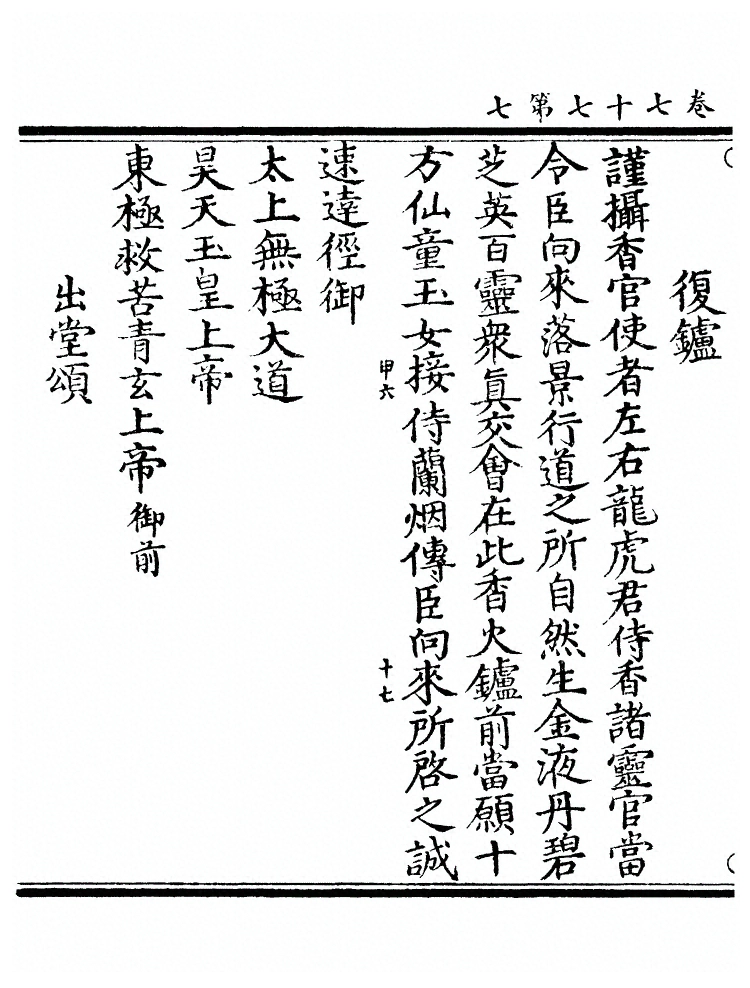 卷七十七第七
復鑪
謹攝香官使者左右龍虎君侍香諸靈官當
令臣向來落景行道之所自然生金液丹碧
芝英百靈衆眞交會在此香火鑪前當願十
方仙童玉女接侍蘭烟傳臣向來所啓之誠
甲六
十七
速達徑御
太上無極大道
昊天玉皇上帝
東極救苦青玄上帝御前
出堂頌